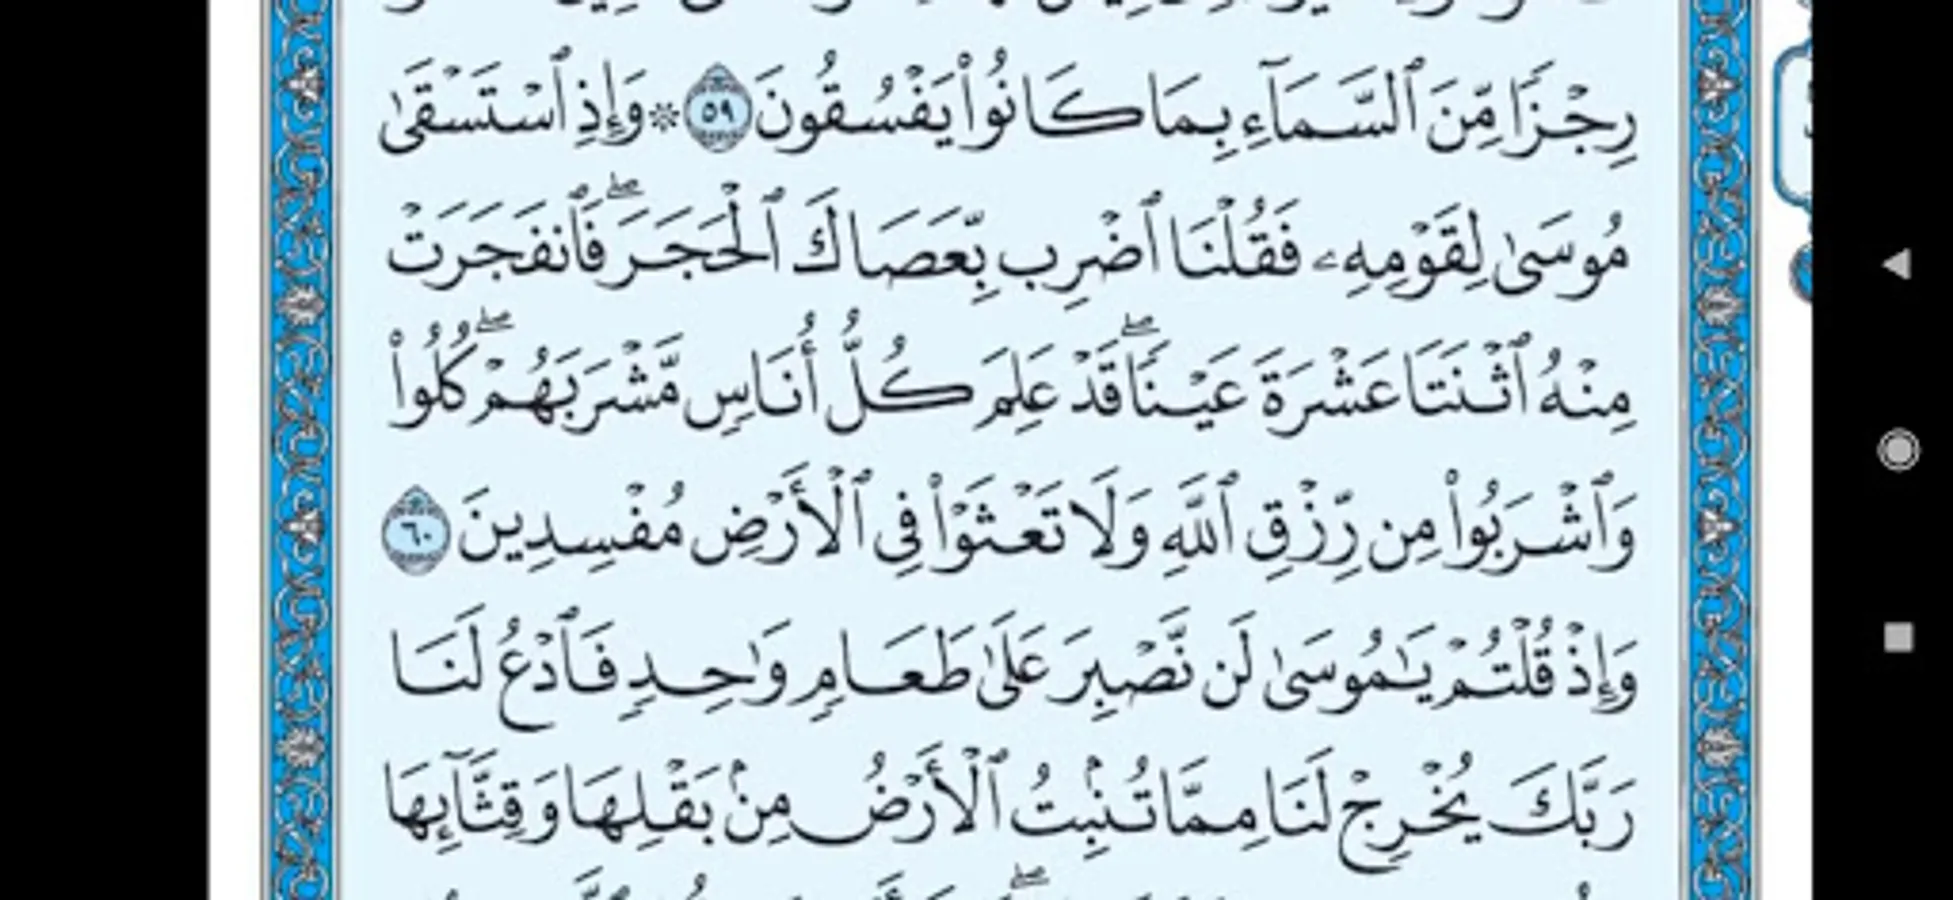 رِجْزًا مِّنَ ٱلسَّمَآءِ بِمَا كَانُوا۟ يَفْسُقُونَ ٥٩ ۞ وَإِذِ ٱسْتَسْقَىٰ
مُوسَىٰ لِقَوْمِهِۦ فَقُلْنَا ٱضْرِب بِّعَصَاكَ ٱلْحَجَرَ ۖ فَٱنفَجَرَتْ
مِنْهُ ٱثْنَتَا عَشْرَةَ عَيْنًا ۖ قَدْ عَلِمَ كُلُّ أُنَاسٍ مَّشْرَبَهُمْ ۖ كُلُوا۟
وَٱشْرَبُوا۟ مِن رِّزْقِ ٱللَّهِ وَلَا تَعْثَوْا۟ فِى ٱلْأَرْضِ مُفْسِدِينَ ٦٠
وَإِذْ قُلْتُمْ يَـٰمُوسَىٰ لَن نَّصْبِرَ عَلَىٰ طَعَامٍ وَٰحِدٍ فَٱدْعُ لَنَا
رَبَّكَ يُخْرِجْ لَنَا مِمَّا تُنۢبِتُ ٱلْأَرْضُ مِنۢ بَقْلِهَا وَقِثَّآئِهَا